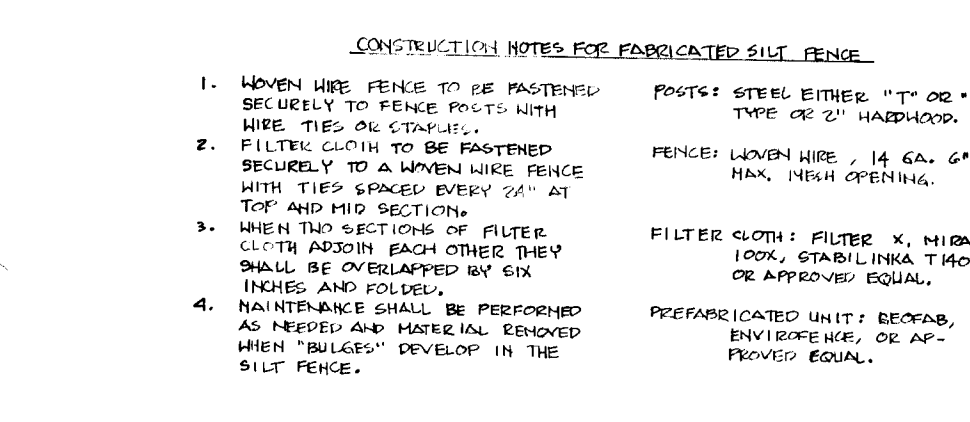 CONSTRUCTION NOTES FOR FABRICATED SILT FENCE
1. WOVEN WIRE FENCE TO BE FASTENED
SECURELY TO FENCE POSTS WITH
WIRE TIES OR STAPLES.
2. FILTER CLOTH TO BE FASTENED
SECURELY TO A WOVEN WIRE FENCE
WITH TIES SPACED EVERY 24" AT
TOP AND MID SECTION.
3. WHEN TWO SECTIONS OF FILTER
CLOTH ADJOIN EACH OTHER THEY
SHALL BE OVERLAPPED BY SIX
INCHES AND FOLDED.
4. MAINTENANCE SHALL BE PERFORMED
AS NEEDED AND MATERIAL REMOVED
WHEN "BULGES" DEVELOP IN THE
SILT FENCE.
POSTS: STEEL EITHER "T" OR "
TYPE OR 2" HARDWOOD.
FENCE: WOVEN WIRE, 14 GA. 6"
MAX. MESH OPENING.
FILTER CLOTH: FILTER X, MIRA
100X, STABILINKA T140
OR APPROVED EQUAL.
PREFABRICATED UNIT: GEOFAB,
ENVIROFENCE, OR AP-
PROVED EQUAL.